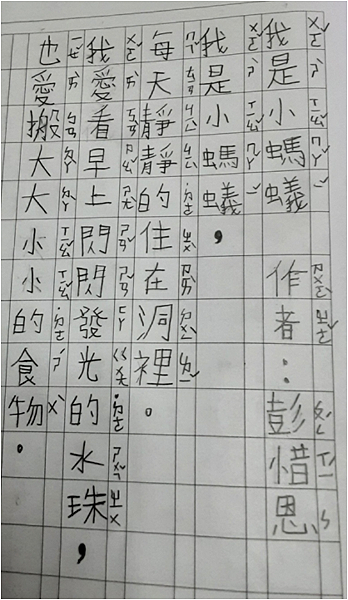 我是小螞蟻 作者：彭惜恩
我是小螞蟻，
每天靜靜的住在洞裡。
我愛看早上閃閃發光的水珠，
也愛搬大大小小的食物。